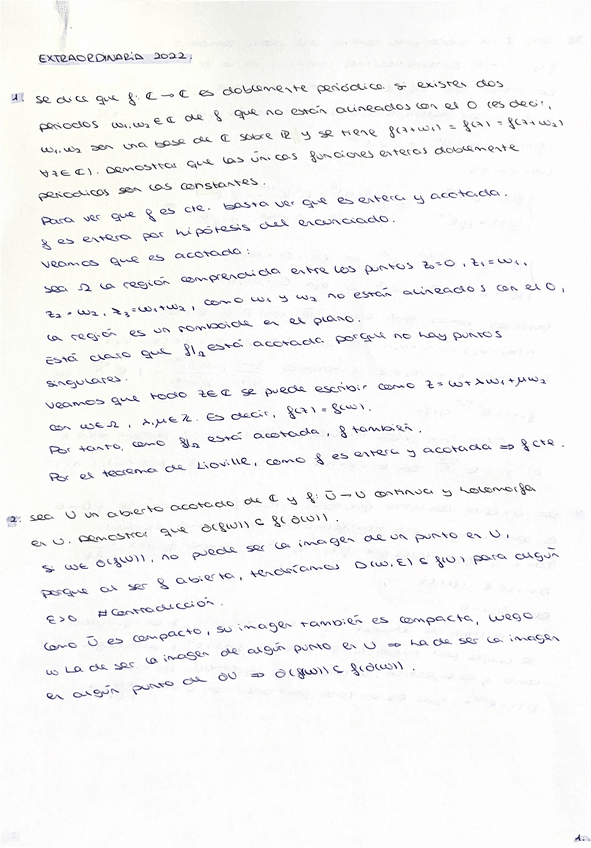 EXTRAORDINARIA 2022.
1. Se dice que f: ℂ → ℂ es doblemente periódica si existen dos
periodos w₁, w₂ ∈ ℂ de f que no están alineados con el 0 (es decir,
w₁, w₂ son una base de ℂ sobre ℝ y se tiene f(z+w₁) = f(z) = f(z+w₂)
∀z ∈ ℂ). Demostrar que las únicas funciones enteras doblemente
periódicas son las constantes.
Para ver que f es cte. basta ver que es entera y acotada.
f es entera por hipótesis del enunciado.
Veamos que es acotada:
Sea Ω la región comprendida entre los puntos z₀=0, z₁=w₁,
z₂=w₂, z₃=w₁+w₂, como w₁ y w₂ no están alineados con el 0,
la región es un romboide en el plano.
Está claro que f|Ω está acotada porque no hay puntos
singulares.
Veamos que todo z∈ℂ se puede escribir como z = w+λw₁+μw₂
con w∈Ω, λ,μ∈ℤ. Es decir, f(z) = f(w).
Por tanto, como f|Ω está acotada, f también.
Por el teorema de Lioville, como f es entera y acotada ⇒ f cte.
2. Sea U un abierto acotado de ℂ y f: Ū → U continua y holomorfa
en U. Demostrar que ∂(f(U)) ⊆ f(∂(U)).
Si w∈ ∂(f(U)), no puede ser la imagen de un punto en U,
porque al ser f abierta, tendríamos D(w,ε) ⊆ f(U) para algún
ε>0 #Contradicción.
Como Ū es compacto, su imagen también es compacta, luego
w ha de ser la imagen de algún punto en U ⇒ ha de ser la imagen
en algún punto de ∂U ⇒ ∂(f(U)) ⊆ f(∂(U)).
1.